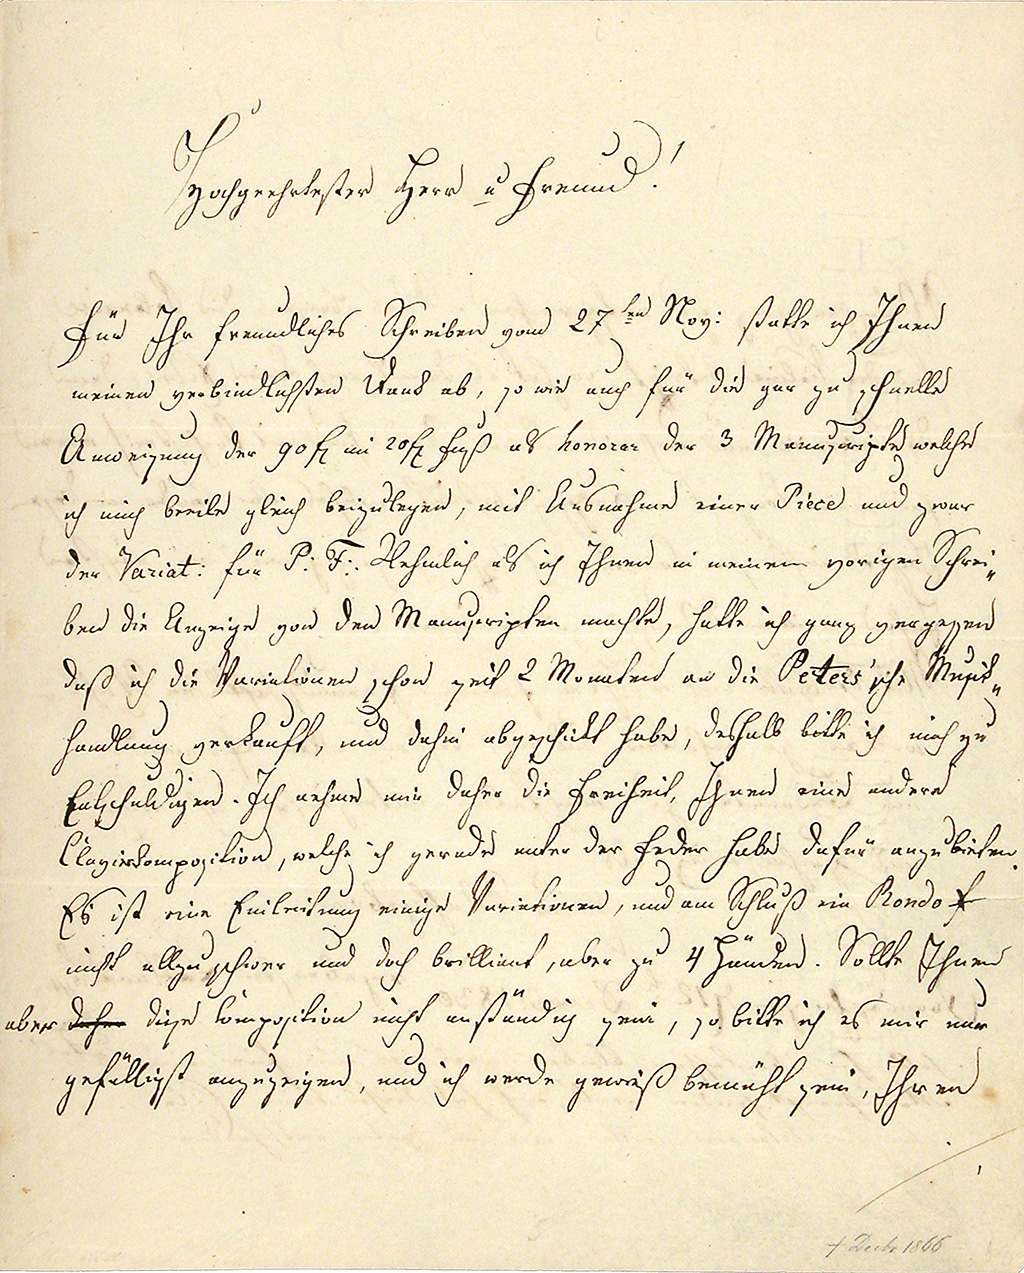 Hochgeehrtester Herr u Freund!
Für Ihr freundliches Schreiben vom 27ten Nov: statte ich Ihnen
meinen verbindlichsten Dank ab, so wie auch für die gar zu schnelle
Anweisung der 90 f im 20f Fuß als honorar der 3 Manuscripte welche
ich mich beeile gleich beizulegen, mit Ausnahme einer Piéce und zwar
der Variat: für P: F:. Nehmlich als ich Ihnen in meinem vorigen Schrei„
ben die Anzeige von den Manuscripten machte, hatte ich ganz vergessen
daß ich die Variationen schon seit 2 Monaten an die Peters'sche Musik„
handlung verkauft, und dahin abgeschickt habe, deshalb bitte ich mich zu
Entschuldigen. Ich nehme mir daher die Freiheit, Ihnen eine andere
Clavierkomposition, welche ich gerade unter der Feder habe dafür anzubieten.
Es ist eine Einleitung einige Variationen, und am Schluß ein Rondo
nicht allzuschwer und doch brilliant, aber zu 4 Händen. Sollte Ihnen
aber daher diese Komposition nicht anständig sein, so bitte ich es mir nur
gefälligst anzuzeigen, und ich werde gewiß bemüht sein, Ihren
† Decbr 1866